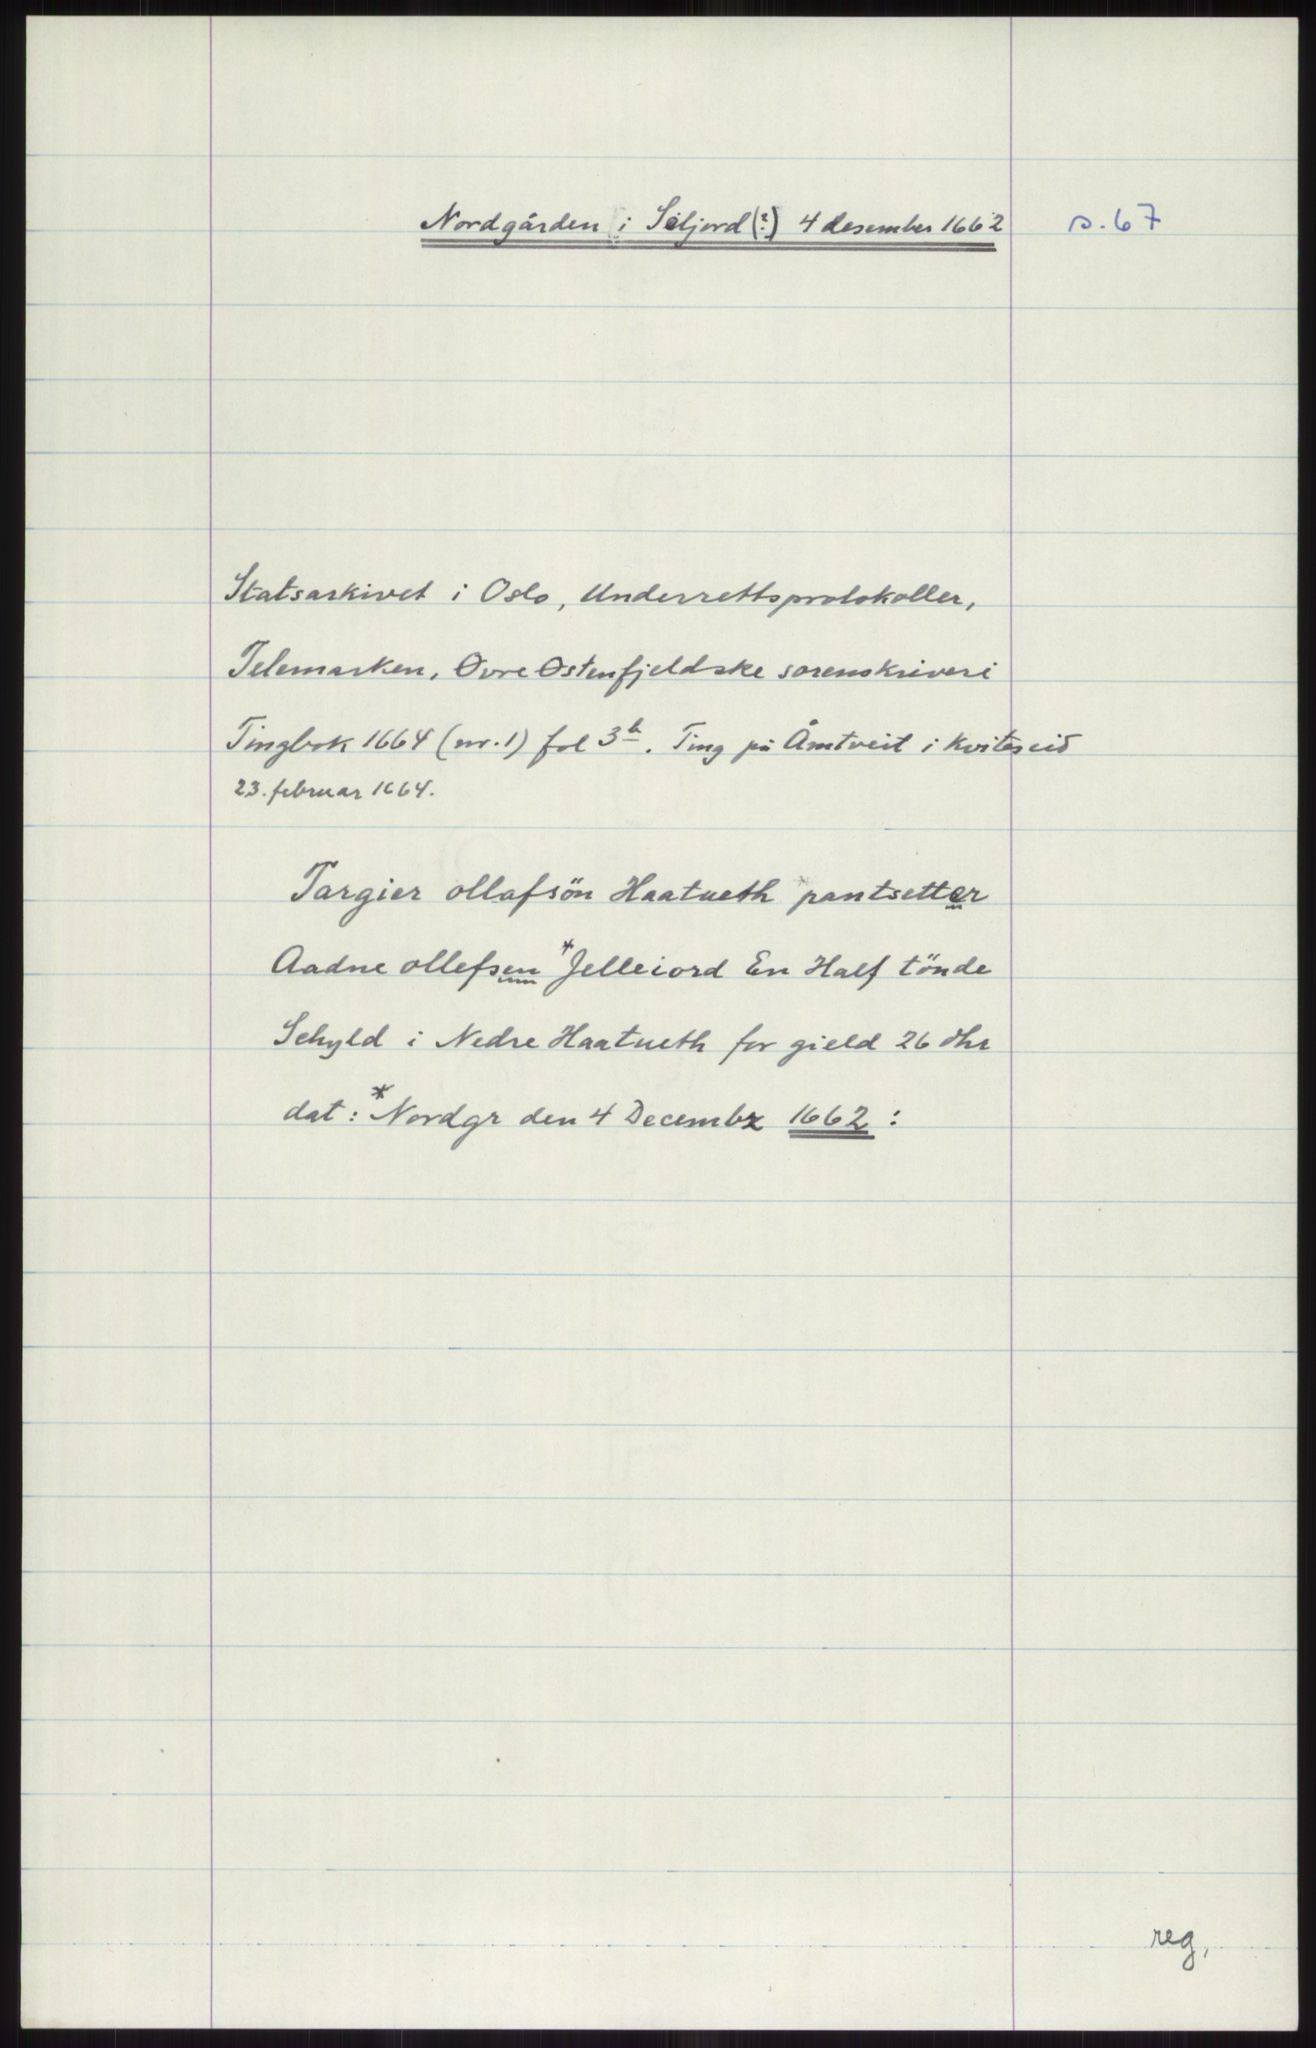 Nordgården i Seljord (?) 4 desember 1662 s. 67
Statsarkivet i Oslo, Underrettsprotokoller,
Telemarken, Øvre Østenfjeldske sorenskriveri
Tingbok 1664 (nr. 1) fol 3b. Ting på Åmtveit i Kviteseid
23. februar 1664.
Targier ollafsön Haatueth pantsetter
Aadne ollefsen *Jelleiord En Half tönde
Schyld i Nedre Haatueth for gield 26 dhr
dat: *Nordgr den 4 Decembr 1662 :
reg.